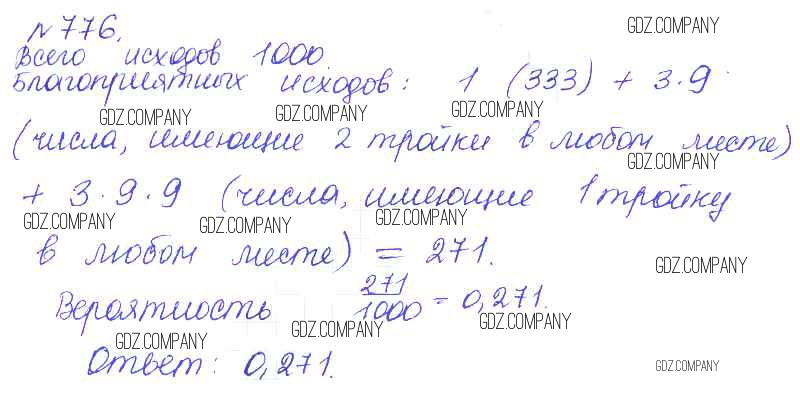 GDZ.COMPANY
№776.
Всего исходов 1000.
Благоприятных исходов: 1 (333) + 3·9
GDZ.COMPANY GDZ.COMPANY GDZ.COMPANY
(числа, имеющие 2 тройки в любом месте)
GDZ.COMPANY
+ 3·9·9 (числа, имеющие 1 тройку
GDZ.COMPANY GDZ.COMPANY GDZ.COMPANY
в любом месте) = 271.
GDZ.COMPANY
Вероятность 271/1000 = 0,271.
GDZ.COMPANY GDZ.COMPANY GDZ.COMPANY
Ответ: 0,271.
GDZ.COMPANY